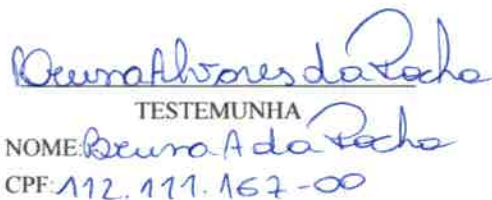 Bruna Alvares da Rocha
TESTEMUNHA
NOME: Bruna A da Rocha
CPF: 112.111.167-00